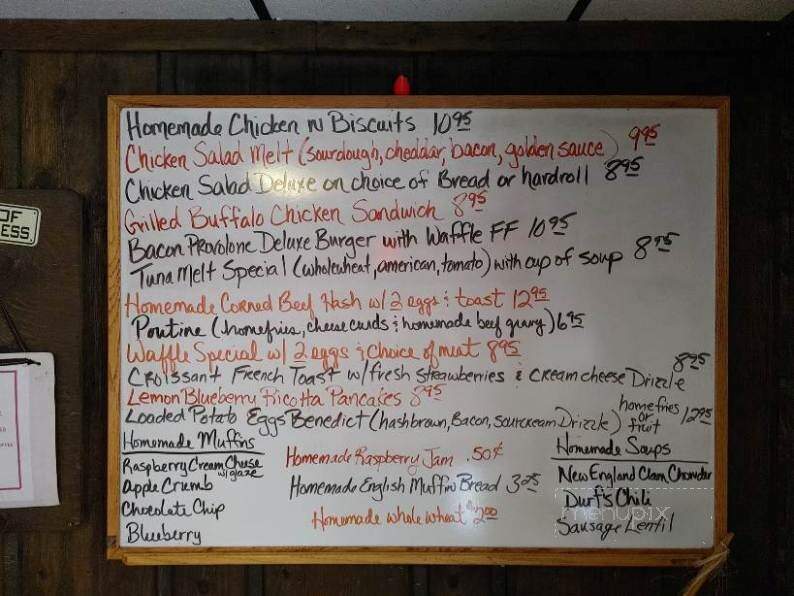 Homemade Chicken w Biscuits 10 95
Chicken Salad Melt (sourdough, cheddar, bacon, golden sauce) 9 95
Chicken Salad Deluxe on choice of Bread or hardroll 8 95
Grilled Buffalo Chicken Sandwich 8 95
Bacon Provolone Deluxe Burger with Waffle FF 10 95
Tuna Melt Special (wholewheat, american, tomato) with cup of soup 8 95
Homemade Corned Beef Hash w/ 2 eggs & toast 12 95
Poutine (homefries, cheese curds & homemade beef gravy) 6 95
Waffle Special w/ 2 eggs & choice of meat 8 95
Croissant French Toast w/ fresh strawberries & creamcheese Drizzle 8 95
Lemon Blueberry Ricotta Pancakes 8 95
Loaded Potato Eggs Benedict (hashbrown, Bacon, sourcream Drizzle) homefries or fruit 12 95
Homemade Muffins
Raspberry Cream Cheese w/ glaze
Apple Crumb
Chocolate Chip
Blueberry
Homemade Raspberry Jam .50¢
Homemade English Muffin Bread 3 25
Homemade whole wheat 2 00
Homemade Soups
New England Clam Chowder
Durf's Chili
Sausage Lentil
menupix
OF
ESS